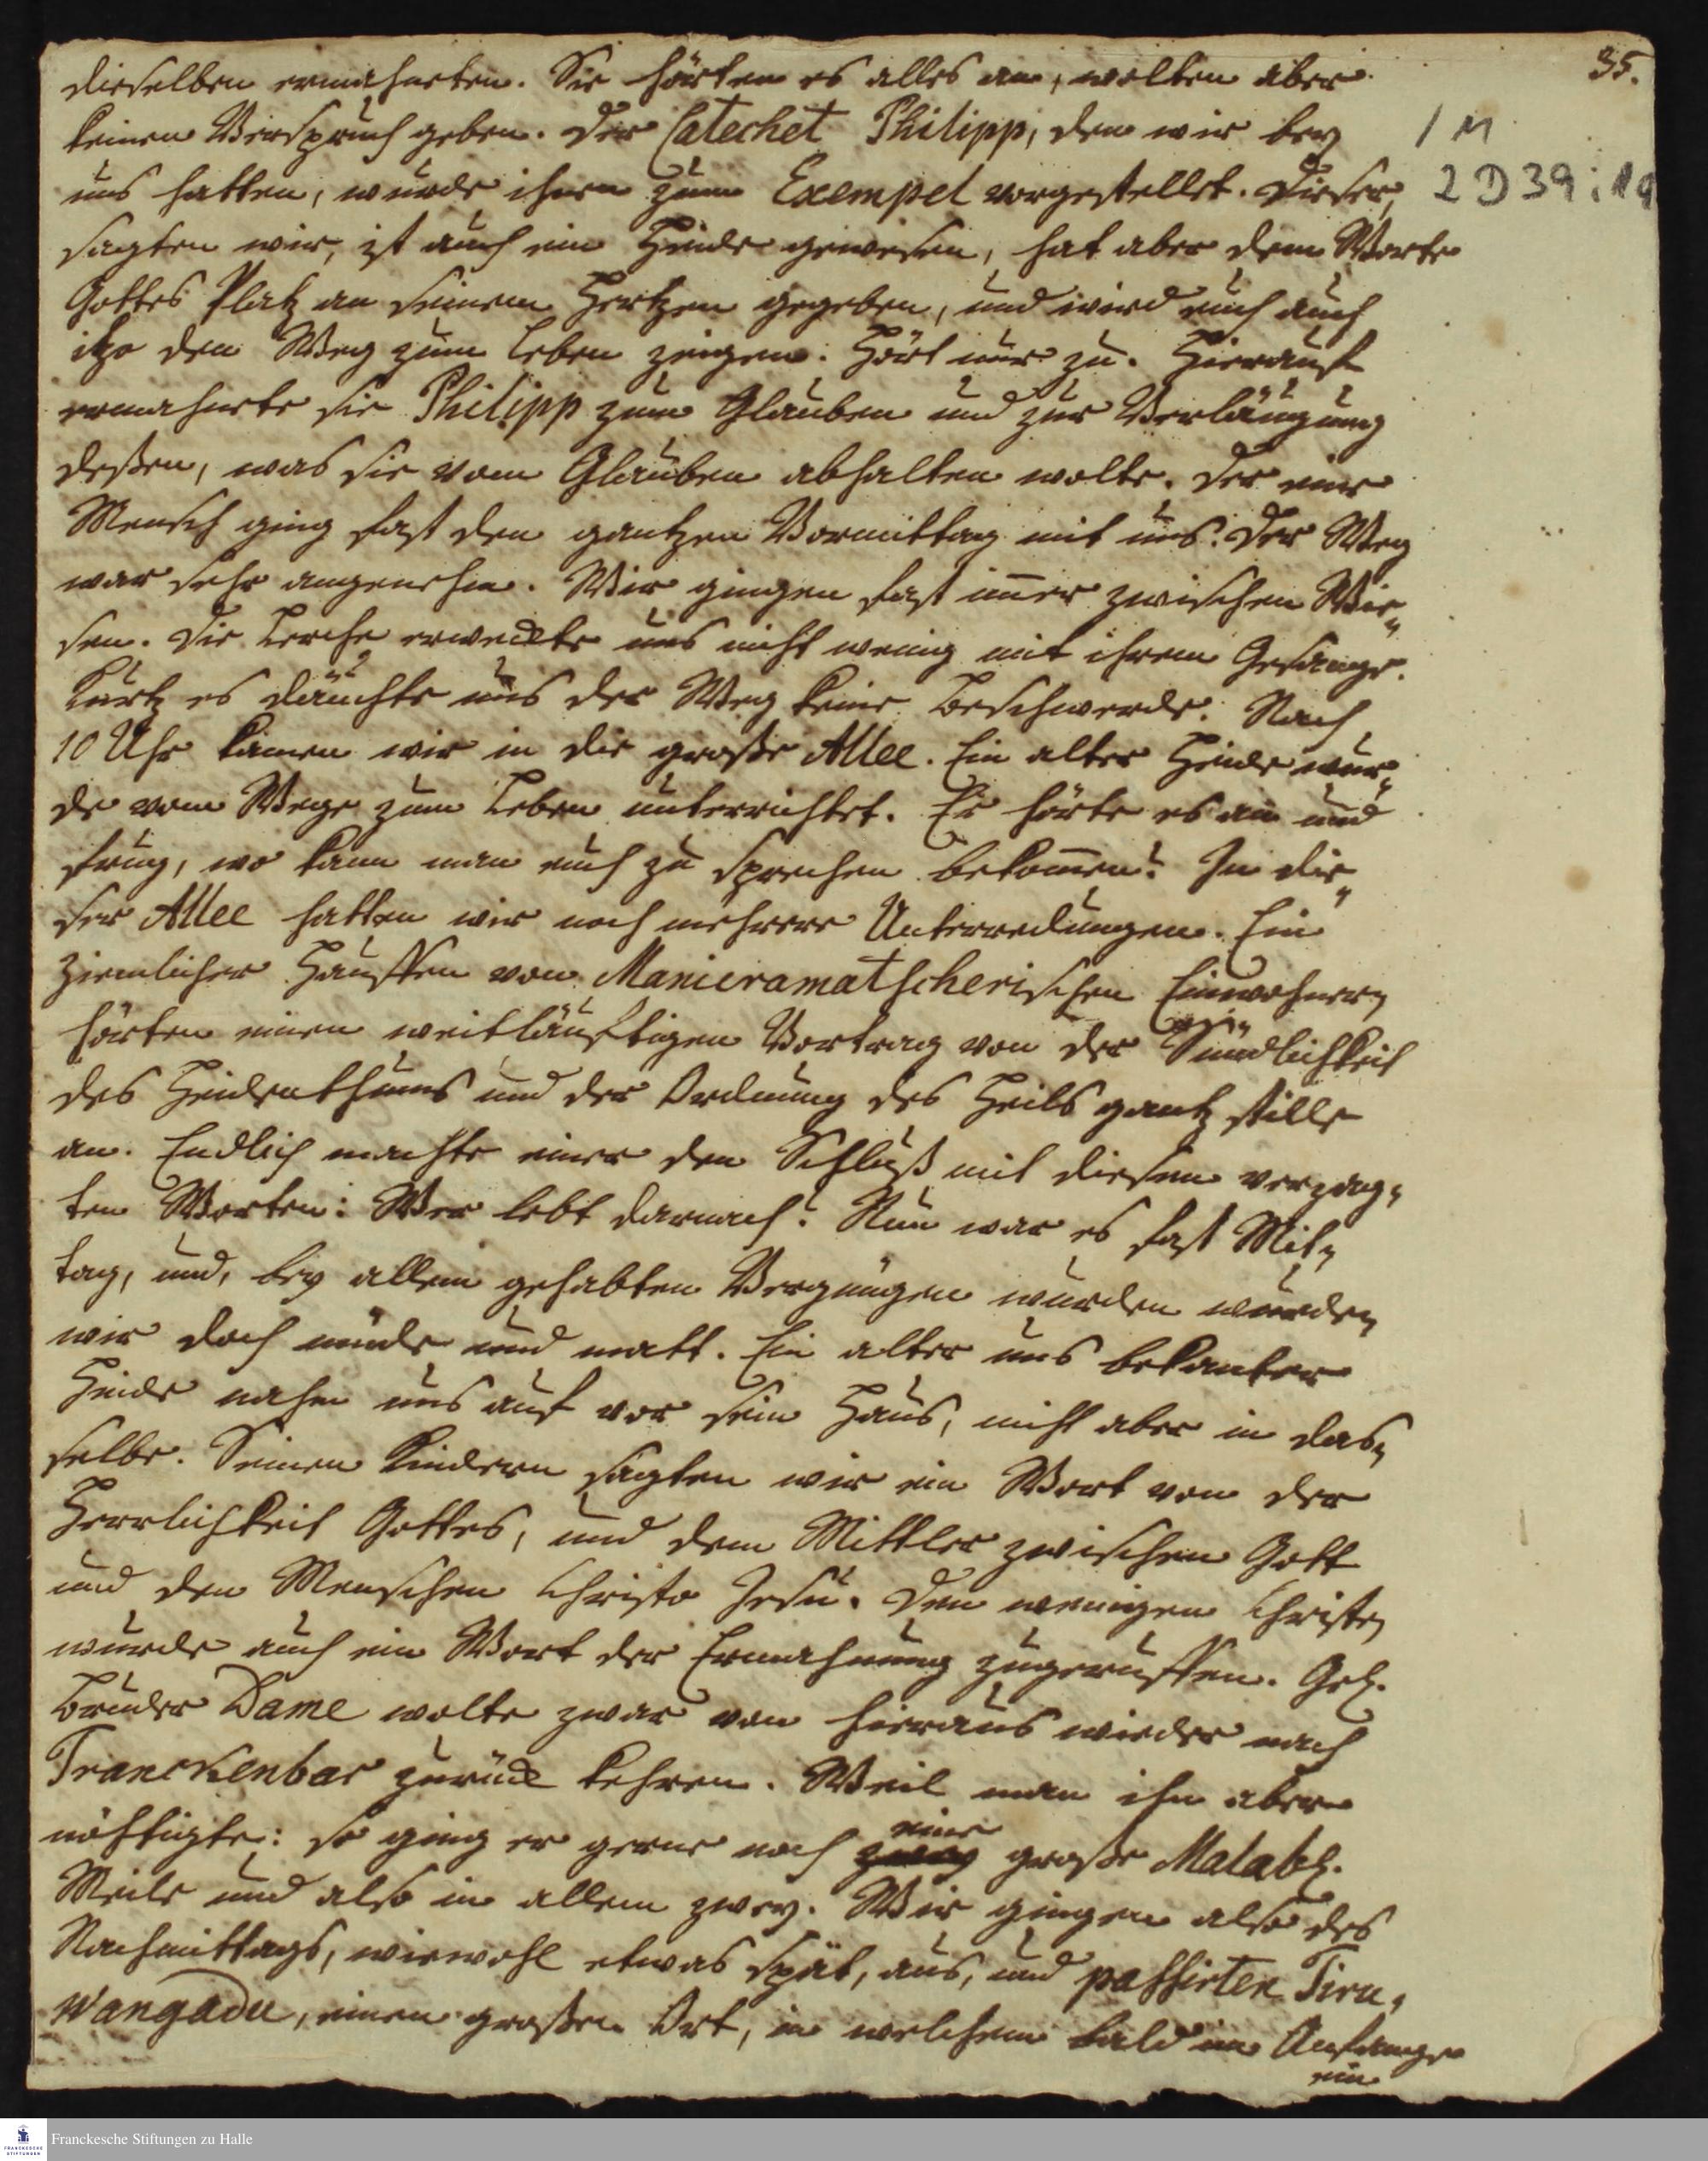 35.
dieselben ermahneten. Sie hörten es alles an, wolten aber
keinen Verspruch geben. Der Catechet Philipp, den wir bey
1 M
uns hatten, wurde ihnen zum Exempel vorgestellet. Dieser,
2 D 39 : 19
sagten wir, ist auch ein Heide gewesen, hat aber dem Worte
Gottes Platz an seinem Hertzen gegeben, und wird euch auch
itzo den Weg zum Leben zeigen: Hört nur zu. Hierauf
ermahnete sie Philipp zum Glauben und zur Verläugnung
deßen, was sie vom Glauben abhalten wolte. Der eine
Mensch ging fast den gantzen Vormittag mit uns. Der Weg
war sehr angenehm. Wir gingen fast im̄er zwischen Wie„
sen. Die Lerche erweckte uns nicht wenig mit ihrem Gesange.
Kurtz es däuchte uns der Weg keine Beschwerde. Nach
10 Uhr kamen wir in die große Allee. Ein alter Heide wur„
de vom Wege zum Leben unterrichtet. Er hörte es an und
frug, wo kann man euch zu sprechen bekom̄en? In die„
ser Allee hatten wir noch mehrere Unterredungen. Ein
ziemlicher Hauffen von Manieramatscherischen Einwohnern
hörten einen weitläuftigen Vortrag von der Sündlichkeit
des Heidenthums und der Ordnung des Heils gantz stille
an. Endlich machte einer den Schluß mit diesen verzag„
ten Worten: Wer lebt darnach? Nun war es fast Mit„
tag, und, bey allem gehabten Vergnügen wurden wurden
wir doch müde und matt. Ein alter uns bekanter
Heide nahm uns auf vor sein Haus, nicht aber in das„
selbe. Seinen Kindern sagten wir ein Wort von der
Herrlichkeit Gottes, und dem Mittler zwischen Gott
und den Menschen Christo Jesu. Den wenigen Christen
wurde auch ein Wort der Ermahnung zugeruffen. Gel.
Bruder Dame wolte zwar von hieraus wieder nach
Tranckenbar zurück kehren. Weil man ihn aber
nöthigte: so ging er gerne noch eine große Malab.
Meile und also in allem zwey. Wir gingen also des
Nachmittags, wiewohl etwas spät, aus, und passirten Tiru„
wangadu, einen großen Ort, in welchem bald im Anfange
ein
Franckesche Stiftungen zu Halle